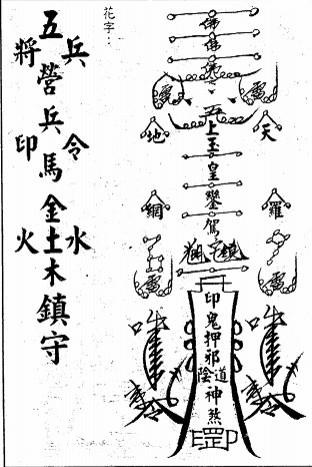 天
羅
佛
佛
佛
五
上
玉
皇
鑾
駕
鎮
印鬼押邪
陰道
神煞
罡
地
網
花字：
兵令水
五營兵馬金土木鎮守
將印火